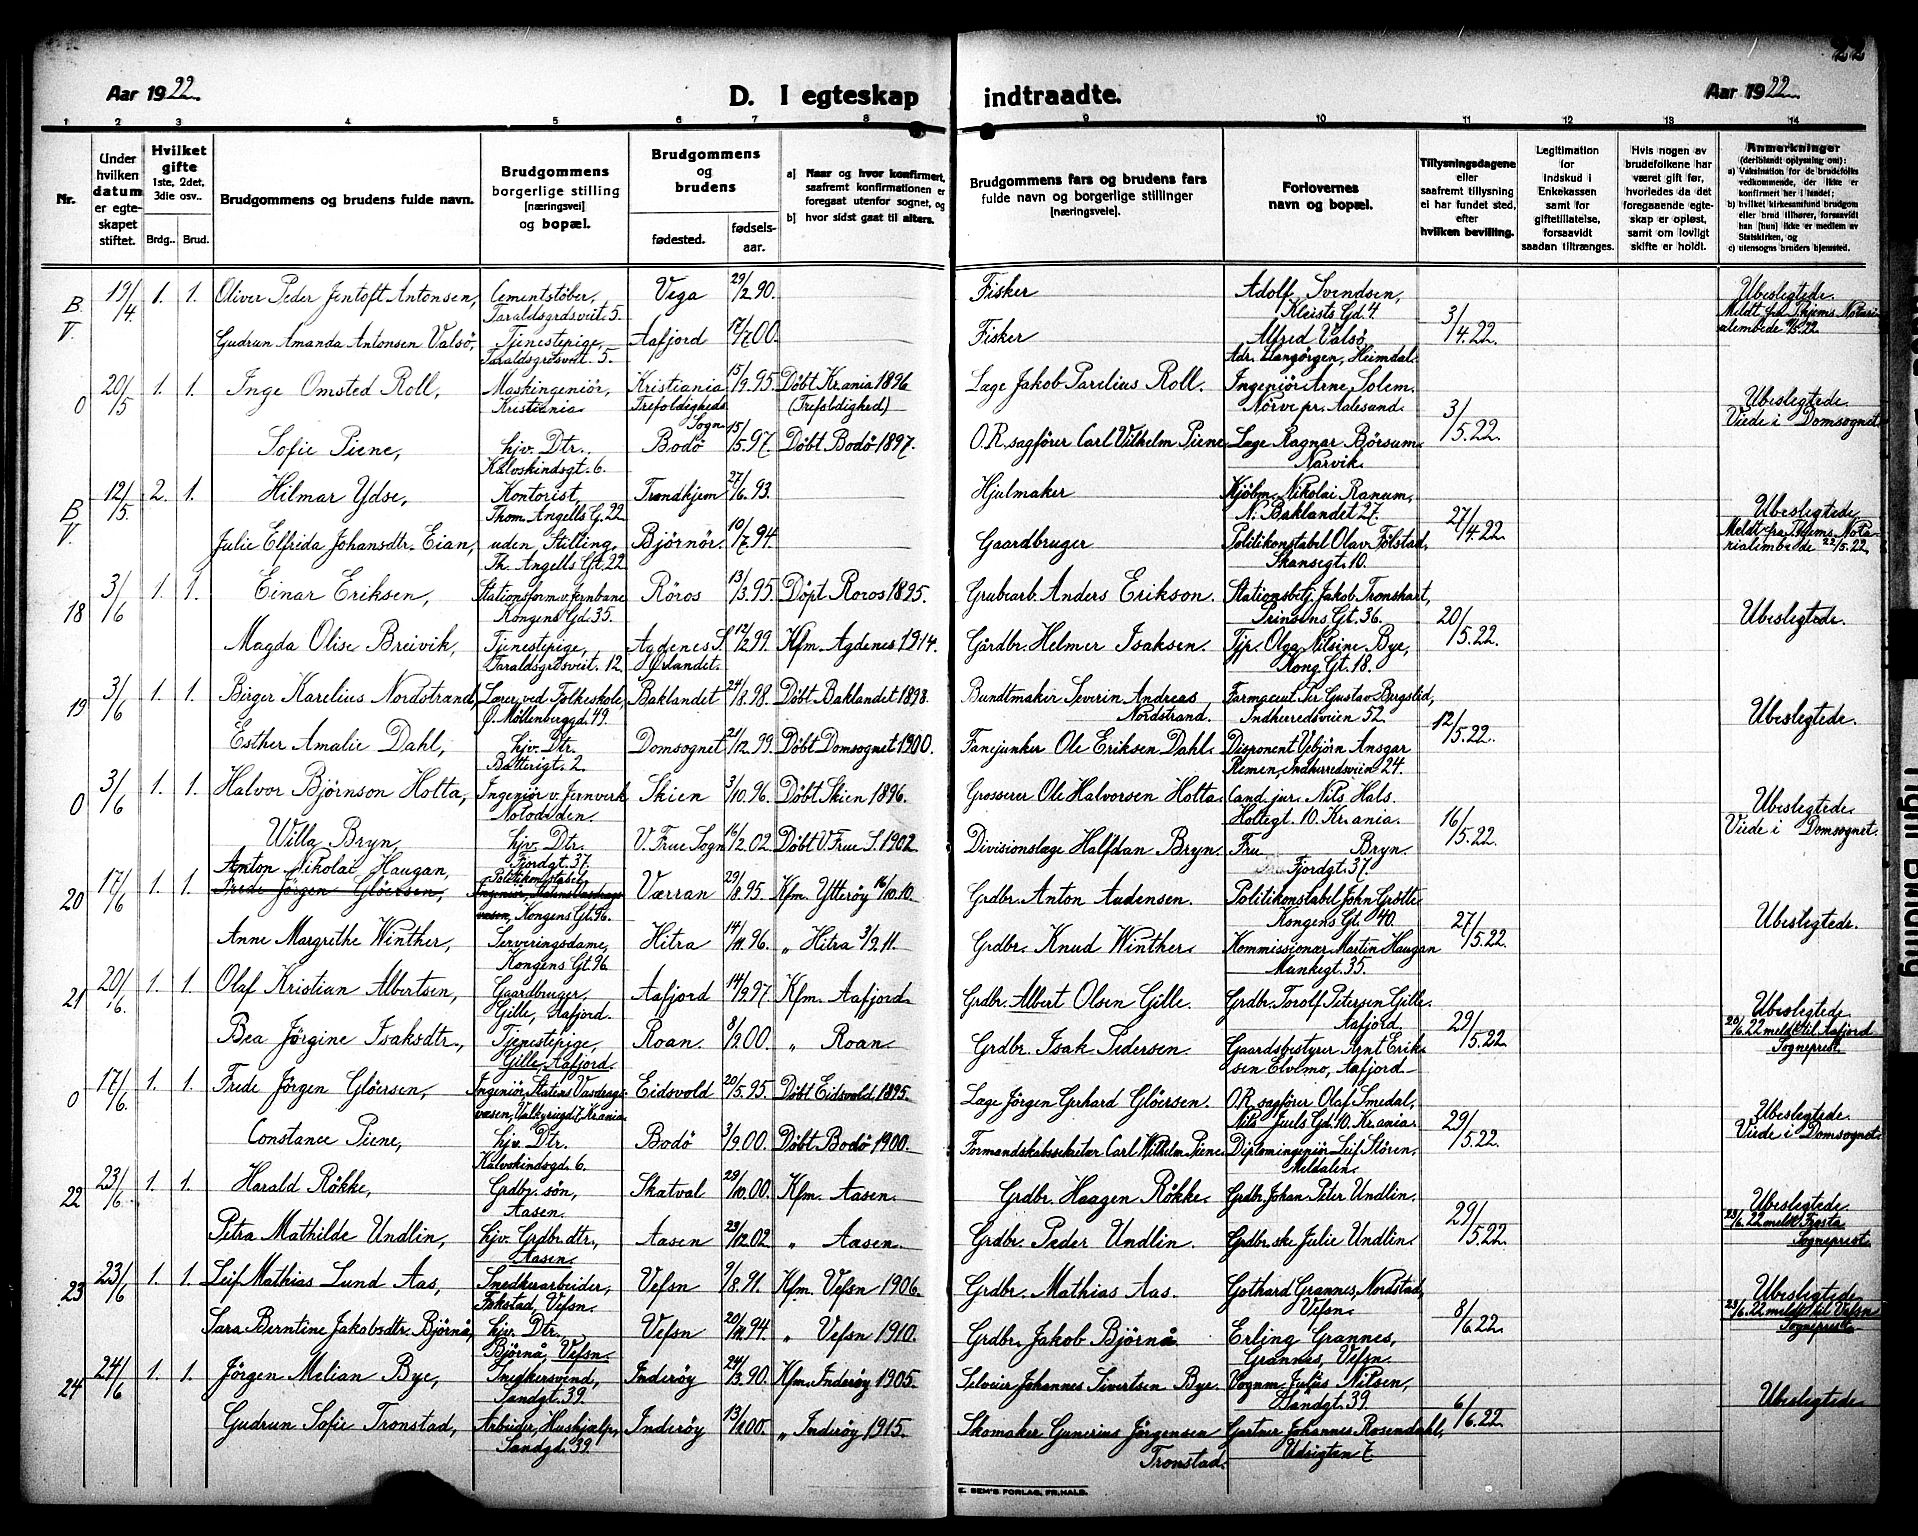 22
Aar 1922. D. I egteskap indtraadte. Aar 1922.
1 2 3 4 5 6 7 8 9 10 11 12 13 14
Nr.
Under hvilken datum er egteskapet stiftet.
Hvilket gifte 1ste, 2det, 3die osv..
Brdg.. Brud.
Brudgommens og brudens fulde navn.
Brudgommens borgerlige stilling [næringsvei] og bopæl.
Brudgommens og brudens
fødested. fødsels-aar.
a) Naar og hvor konfirmert, saafremt konfirmationen er foregaat utenfor sognet, og
b) hvor sidst gaat til alters.
Brudgommens fars og brudens fars fulde navn og borgerlige stillinger [næringsveie].
Forlovernes navn og bopæl.
Tillysningsdagene eller saafremt tillysning ei har fundet sted, efter hvilken bevilling.
Legitimation for indskud i Enkekassen samt for giftetillatelse, forsaavidt saadan tiltrænges.
Hvis nogen av brudefolkene har været gift før, hvorledes da det foregaaende egteskap er opløst, samt om lovligt skifte er holdt.
Anmerkninger (deriblandt oplysning om):
a) Vaksination for de brudefolks vedkommende, der ikke er konfirmert her i landet;
b) hvilket kirkesamfund brudgom eller brud tilhører, forsaavidt han [hun] ikke er medlem av Statskirken, og
c) utensogns bruders hjemsted.
B. V. 19/4 1. 1. Oliver Peder Jentoft Antonsen, Cementstøber, Taraldsgrdsveit. 5. Vega 29/2 90. Fisker Adolf Svendsen, Kleists Gd. 4. 3/4.22. Ubeslegtede. Meldt fra Thjems Notarialembede
Gudrun Amanda Antonsen Valsö, Tjenestepige, Taraldsgrdsveit. 5. Aafjord 17/7.00. Fisker Alfred Valsø, Heimdal.
O 20/5 1. 1. Inge Omsted Roll, Maskingeniör, Kristiania. Kristiania Trefoldigheds Sogn 15/9.95. Döbt Kr.ania 1896 (Trefoldighed) Læge Jakob Parelius Roll. Ingeniör Arne Solem. Nörve pr. Aalesund. 3/5.22. Ubeslegtede. Viede i Domsognet.
Sofie Piene, hjv. Dtr. Kalvskindsgt. 6. Bodö 15/5.97. Döbt Bodö 1897. O.R. sagförer Carl Vilhelm Piene Læge Ragnar Börsum. Narvik.
B. V. 12/5 2. 1. Hilmar Ydse, Kontorist, Thom. Angells G. 22 Trondhjem 27/6.93. Hjulmaker Kjöbm. Nikolai Ranum, N. Baklandet 27. 27/4.22. Ubeslegtede. Meldt fra Thjems Notarialembede 22/5.22.
Julie Elfrida Johansdtr. Eian, uden Stilling, Th. Angells Gt. 22 Björnör. 10/7.94. Gaardbruger Politikonstabel Olav Fölstad, Skansegt. 10.
18 3/6 1. 1. Einar Eriksen, Stationsform. v. Jernbane Kongens Gd. 35. Röros 13/3.95. Döpt Roros 1895. Grubearb. Anders Erikson. Stationsbetj. Jakob Tronshart, Prinsens Gt. 36. 20/5.22. Ubeslegtede.
Magda Olise Breivik, Tjenestepige, Taraldsgrdsveit. 12. Agdenes S. Ørlandet. 12/12.99. Kfm. Agdenes 1914. Gårdbr. Helmer Isaksen. Tjp. Olga Nilsine Bye, Kong. Gt. 18.
19 3/6 1. 1. Birger Karelius Nordstrand, Lærer ved Folkeskole, Ø. Möllenberggd. 49. Baklandet 24/8.98. Döbt Baklandet 1898. Bundtmaker Severin Andreas Nordstrand. Farmaceut Per Gustav Bergslid, Indherredsveien 52. 12/5.22. Ubeslegtede.
Esther Amalie Dahl, hjv. Dtr. Batterigt. 2. Domsognet 21/12.99. Döbt Domsognet 1900. Fanejunker Ole Eriksen Dahl. Disponent Vebjörn Ansgar Remen, Indherredsveien 24.
O 3/6 1. 1. Halvor Bjørnson Holta, Ingeniör v. Jernverk Notodden. Skien 3/10.96. Döbt Skien 1896. Grosserer Ole Halvorsen Holta Cand. jur. Nils Hals. Holtegt. 10. Kr.ania. 16/5.22. Ubeslegtede. Viede i Domsognet.
Willa Bryn, hjv. Dtr. Fjordgt. 37. V. Frue Sogn 16/2.02. Döbt V. Frue S. 1902. Divisionslæge Halfdan Bryn. Fru Bryn. Fjordgt. 37.
20 17/6 1. 1. Anton Nikolai Haugan, Frede Jörgen Glöersen, Politikonstabel, Ingeniör, Statens Vasdragsvæsen, Kongens Gt. 96. Værran 29/8.95. Kfm. Ytteröy 16/10.10. Grdbr. Anton Audensen. Politikonstabel John Grötte Kongens Gt. 40. 27/5.22. Ubeslegtede.
Anne Margrethe Winther, Serveringsdame, Kongens Gt. 96 Hitra 14/11.96. „ Hitra 3/9.11. Grdbr. Knud Winther. Kommissionær Martin Haugan Munkegt. 35.
21 20/6 1. 1. Olaf Kristian Albertsen, Gaardbruger, Gille, Aafjord. Aafjord 14/9.97 Kfm. Aafjord. Grdbr. Albert Olsen Gille. Grdbr. Torolf Petersen Gille. Aafjord. 29/5.22. Ubeslegtede. 20/6.22 meldt til Aafjord Sogneprest
Bea Jörgine Isaksdtr., Tjenestepige, Gille, Aafjord. Roan. 8/2.00. „ Roan. Grdbr. Isak Pedersen. Gaardsbestyrer Arnt Eriksen Elvemo, Aafjord
O 17/6. 1. 1. Frede Jörgen Glöersen, Ingeniör, Statens Vasdragsvæsen, Valkyriegd. 7. Kr.ania. Eidsvold 20/5.95. Döbt Eidsvold 1895. Læge Jörgen Gerhard Glöersen. O.R. sagförer Olaf Smedal, Nils Juels Gd. 10. Kr.ania. 29/5.22. Ubeslegtede. Viede i Domsognet.
Constance Piene, hjv. Dtr. Kalvskindsgd. 6. Bodö 3/9.00. Döbt Bodö 1900. Formandskabssekretær Carl Wilhelm Piene. Diplomingeniör Leif Stören, Meldalen.
22 23/6 1. 1. Harald Røkke, Grdbr. sön, Aasen. Skatval 29/10.00. Kfm. Aasen. Grdbr. Haagen Røkke. Grdbr. Johan Peter Undlin. 29/5.22. Ubeslegtede. 23/6.22 meldt Frosta Sogneprest
Petra Mathilde Undlin, hjv. Grdbr. dtr., Aasen. Aasen 23/12.02 „ Aasen. Grdbr. Peder Undlin. Grdbr.ske Julie Undlin.
23 23/6 1. 1. Leif Mathias Lund Aas, Snedkerarbeider, Fokstad, Vefsn. Vefsn 9/8.91. Kfm. Vefsn 1906. Grdbr. Mathias Aas. Gothard Grannes, Nordstad, Vefsn. 8/6.22. Ubeslegtede. 23/6.22 meldt til Vefsn Sogneprest
Sara Berntine Jakobsdtr. Björnå, hjv. Dtr. Björnå, Vefsn. Vefsn 20/11.94. „ Vefsn 1910. Grdbr. Jakob Björnå Erling Grannes, Grannes, Vefsn.
24 24/6 1. 1. Jörgen Melian Bye, Snedkersvend, Sandgt. 39. Inderöy 24/3.90. Kfm. Inderöy 1905. Selveier Johannes Sivertsen Bye. Vognm. Julius Nilsen, Sandgt. 39. 6/6.22. Ubeslegtede
Gudrun Sofie Tronstad, Arbeider, Hushjælp, Sandgd. 39. Inderöy 13/1.00. „ Inderöy 1915. Skomaker Gunerius Jörgensen Tronstad. Gartner Johannes Rosendahl, Udsigten 7
E. SEM'S FORLAG, FR.HALD.